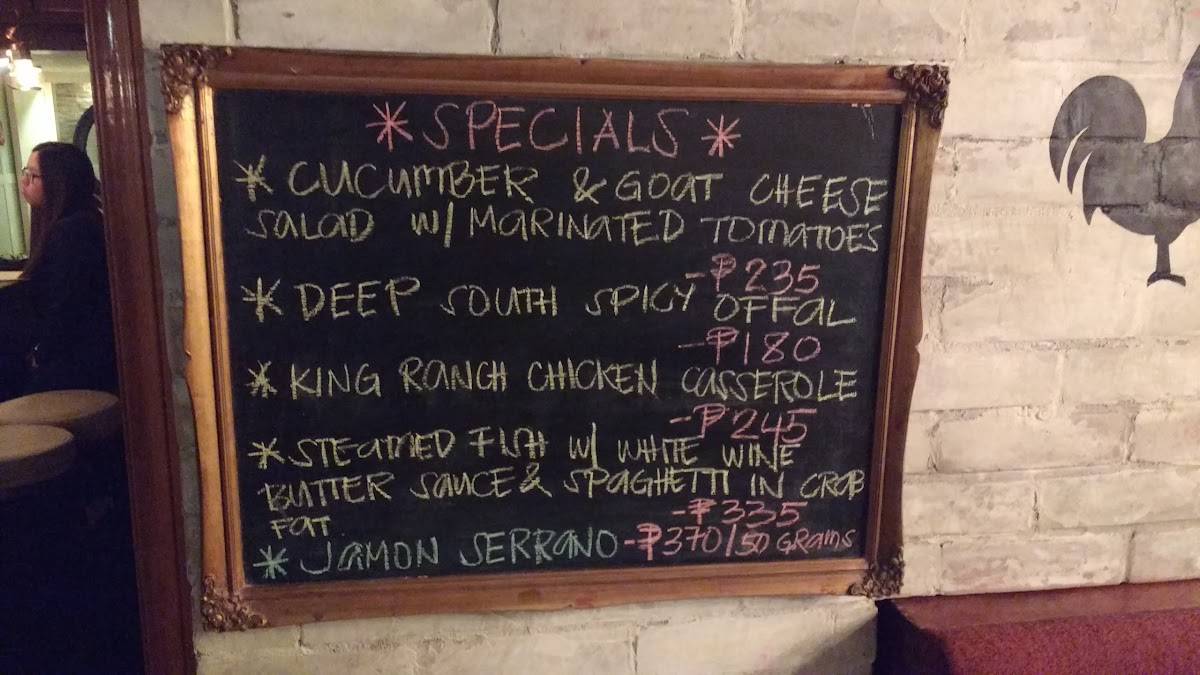 * SPECIALS *
* CUCUMBER & GOAT CHEESE
SALAD W/ MARINATED TOMATOES
-₱235
* DEEP SOUTH SPICY OFFAL
-₱180
* KING RANCH CHICKEN CASSEROLE
-₱245
* STEAMED FISH W/ WHITE WINE
BUTTER SAUCE & SPAGHETTI IN CRAB
FAT
-₱335
* JAMON SERRANO -₱370/50 GRAMS